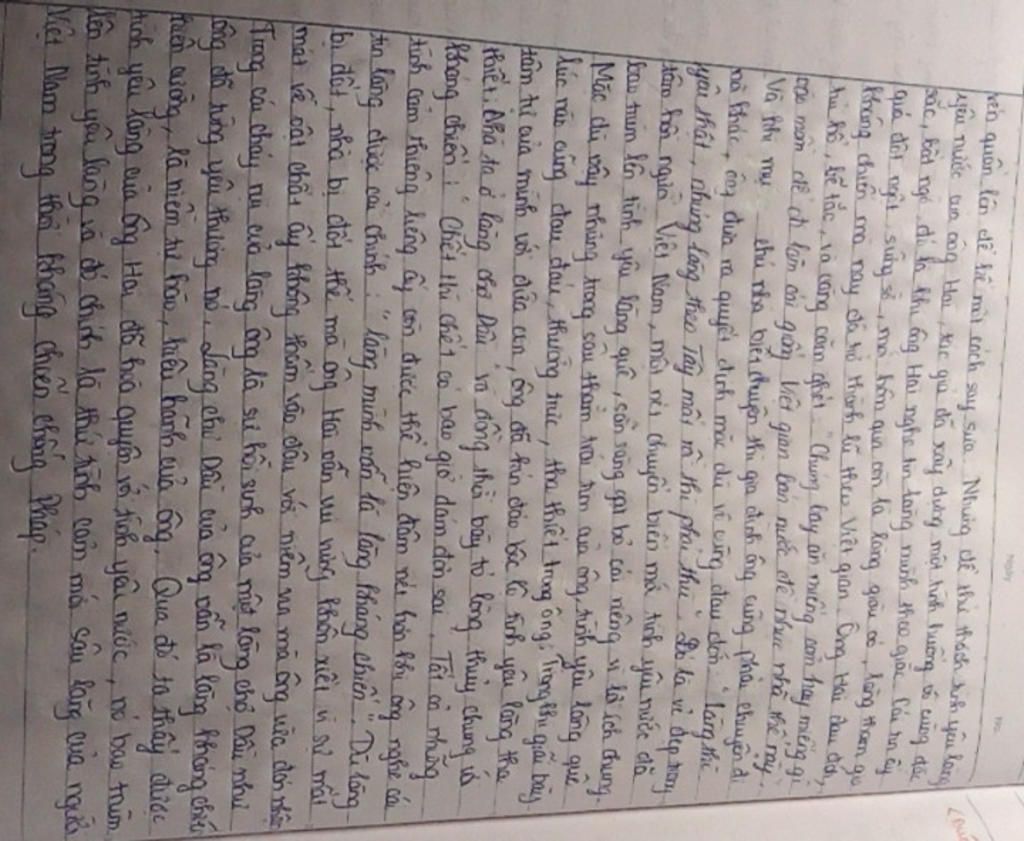 quân lên để kể một cách say sưa. Nhưng để thử thách tình yêu làng
yêu nước của ông Hai, tác giả đã xây dựng một tình huống vô cùng đặc
sắc, bất ngờ, đó là khi ông Hai nghe tin làng mình theo giặc. Cái tin ấy
quá đột ngột, sững sờ, mới hôm qua còn là làng giàu có, làng tham gia
kháng chiến mà nay đã trở thành lũ theo Việt gian. Ông Hai đau đớn,
tủi hổ, bế tắc, và căm ghét "Chúng bay ăn miếng cơm hay miếng gì
vào mồm để đi làm cái giống Việt gian bán nước để nhục nhã thế này".
Và khi mụ chủ nhà biết chuyện thì gia đình ông cũng phải chuyển đi
nơi khác, ông đưa ra quyết định mặc dù vô cùng đau đớn "Làng thì
yêu thật, nhưng làng theo Tây mất rồi thì phải thù". Đó là vẻ đẹp trong
tâm hồn người Việt Nam, một nét chuyển biến mới, tình yêu nước đã
bao trùm lên tình yêu làng quê, sẵn sàng gạt bỏ cái riêng vì lợi ích chung.
Mặc dù vậy nhưng trong sâu thẳm trái tim của ông, tình yêu làng quê
lúc nào cũng đau đáu, thường trực, tha thiết trong ông. Trong khi giãi bày
tâm tư của mình với đứa con, ông đã kín đáo bộc lộ tình yêu làng tha
thiết: Nhà ta ở làng chợ Dầu và đồng thời bày tỏ lòng thủy chung với
kháng chiến: "Chết thì chết có bao giờ dám đơn sai". Tất cả những
tình cảm thiêng liêng ấy còn được thể hiện đậm nét hơn khi ông nghe cái
tin làng được cải chính: "làng mình vẫn là làng kháng chiến". Dù làng
bị đốt, nhà bị đốt thế mà ông Hai vẫn vui mừng khôn xiết vì sự mất
mát về vật chất ấy không thấm vào đâu với niềm vui mà ông vừa đón nhận
Trong cái cháy rụi của làng ông là sự hồi sinh của một làng chợ Dầu như
ông đã từng yêu thương nó. Làng chợ Dầu của ông vẫn là làng kháng chiến
kiên cường, là niềm tự hào, kiêu hãnh của ông. Qua đó ta thấy được
tình yêu làng của ông Hai đã hòa quyện với tình yêu nước, nó bao trùm
lên tình yêu làng và đó chính là thứ tình cảm mới sâu lắng của người
Việt Nam trong thời kháng chiến chống Pháp.